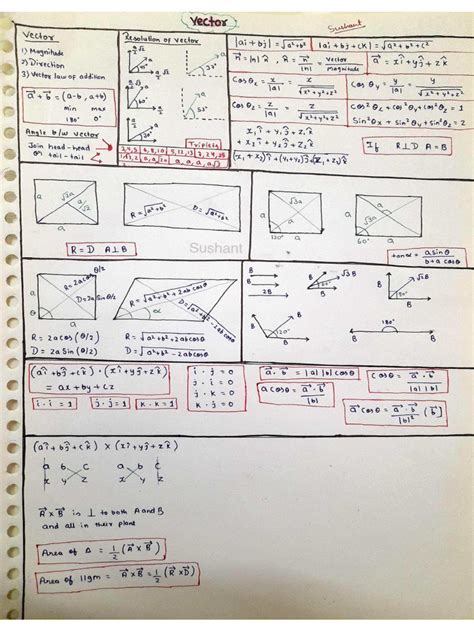 Vector
Sushant
Vector
1) Magnitude
2) Direction
3) Vector law of addition
a + b = (a-b, a+b)
min max
180° 0°
Angle b/w vector
Join head-head
or tail-tail
Resolution of vector
Triplets
3,4,5 6,8,10 5,12,13
|ai + bj| = √a²+b²
|ai + bj + ck| = √a²+b²+c²
a = xi + yj + zk
Cosθx = x/|a| = x/√x²+y²+z²
Cosθy = y/|a| = y/√x²+y²+z²
Cosθz = z/|a| = z/√x²+y²+z²
Cos²θx + cos²θy + cos²θz = 1
Sin²θx + sin²θy + sin²θz = 2
x₁i + y₁j + z₁k
+ x₂i + y₂j + z₂k
(x₁+x₂)i + (y₁+y₂)j + (z₁+z₂)k
If R⊥D A=B
a
√2a
R=√a²+b²
D=√a²+b²
R = D A⊥B
Sushant
√3a
a
120°
√3a
a
60°
tanα = a sinθ / b+a cosθ
θ/2
R=2acosθ/2
D=2a Sinθ/2
R = 2a cos(θ/2)
D = 2a Sin(θ/2)
R=√a²+b²+2ab cosθ
D=√a²+b²-2ab cosθ
α
R = √a²+b²+2abcosθ
D = √a²+b²-2abcosθ
B
B
2B
B
√3B
60°
B
B
√2B
90°
B
B
B
120°
B
180°
B
B
(ai + bj + ck) · (xi + yj + zk)
= ax + by + cz
i · i = 1
j · j = 1
k · k = 1
i · j = 0
j · i = 0
j · k = 0
k · j = 0
a · b = |a| |b| cosθ
a cosθ = a · b / |b|
Cosθ = a · b / |a| |b|
a cosθ = a · b / |b|² [b]
(ai + bj + ck) × (xi + yj + zk)
a b c
x y z
a b c
x y z
A×B is ⊥ to both A and B
and all in their plane
Area of Δ = 1/2 (A × B)
Area of llgm = A×B = 1/2 (R × D)